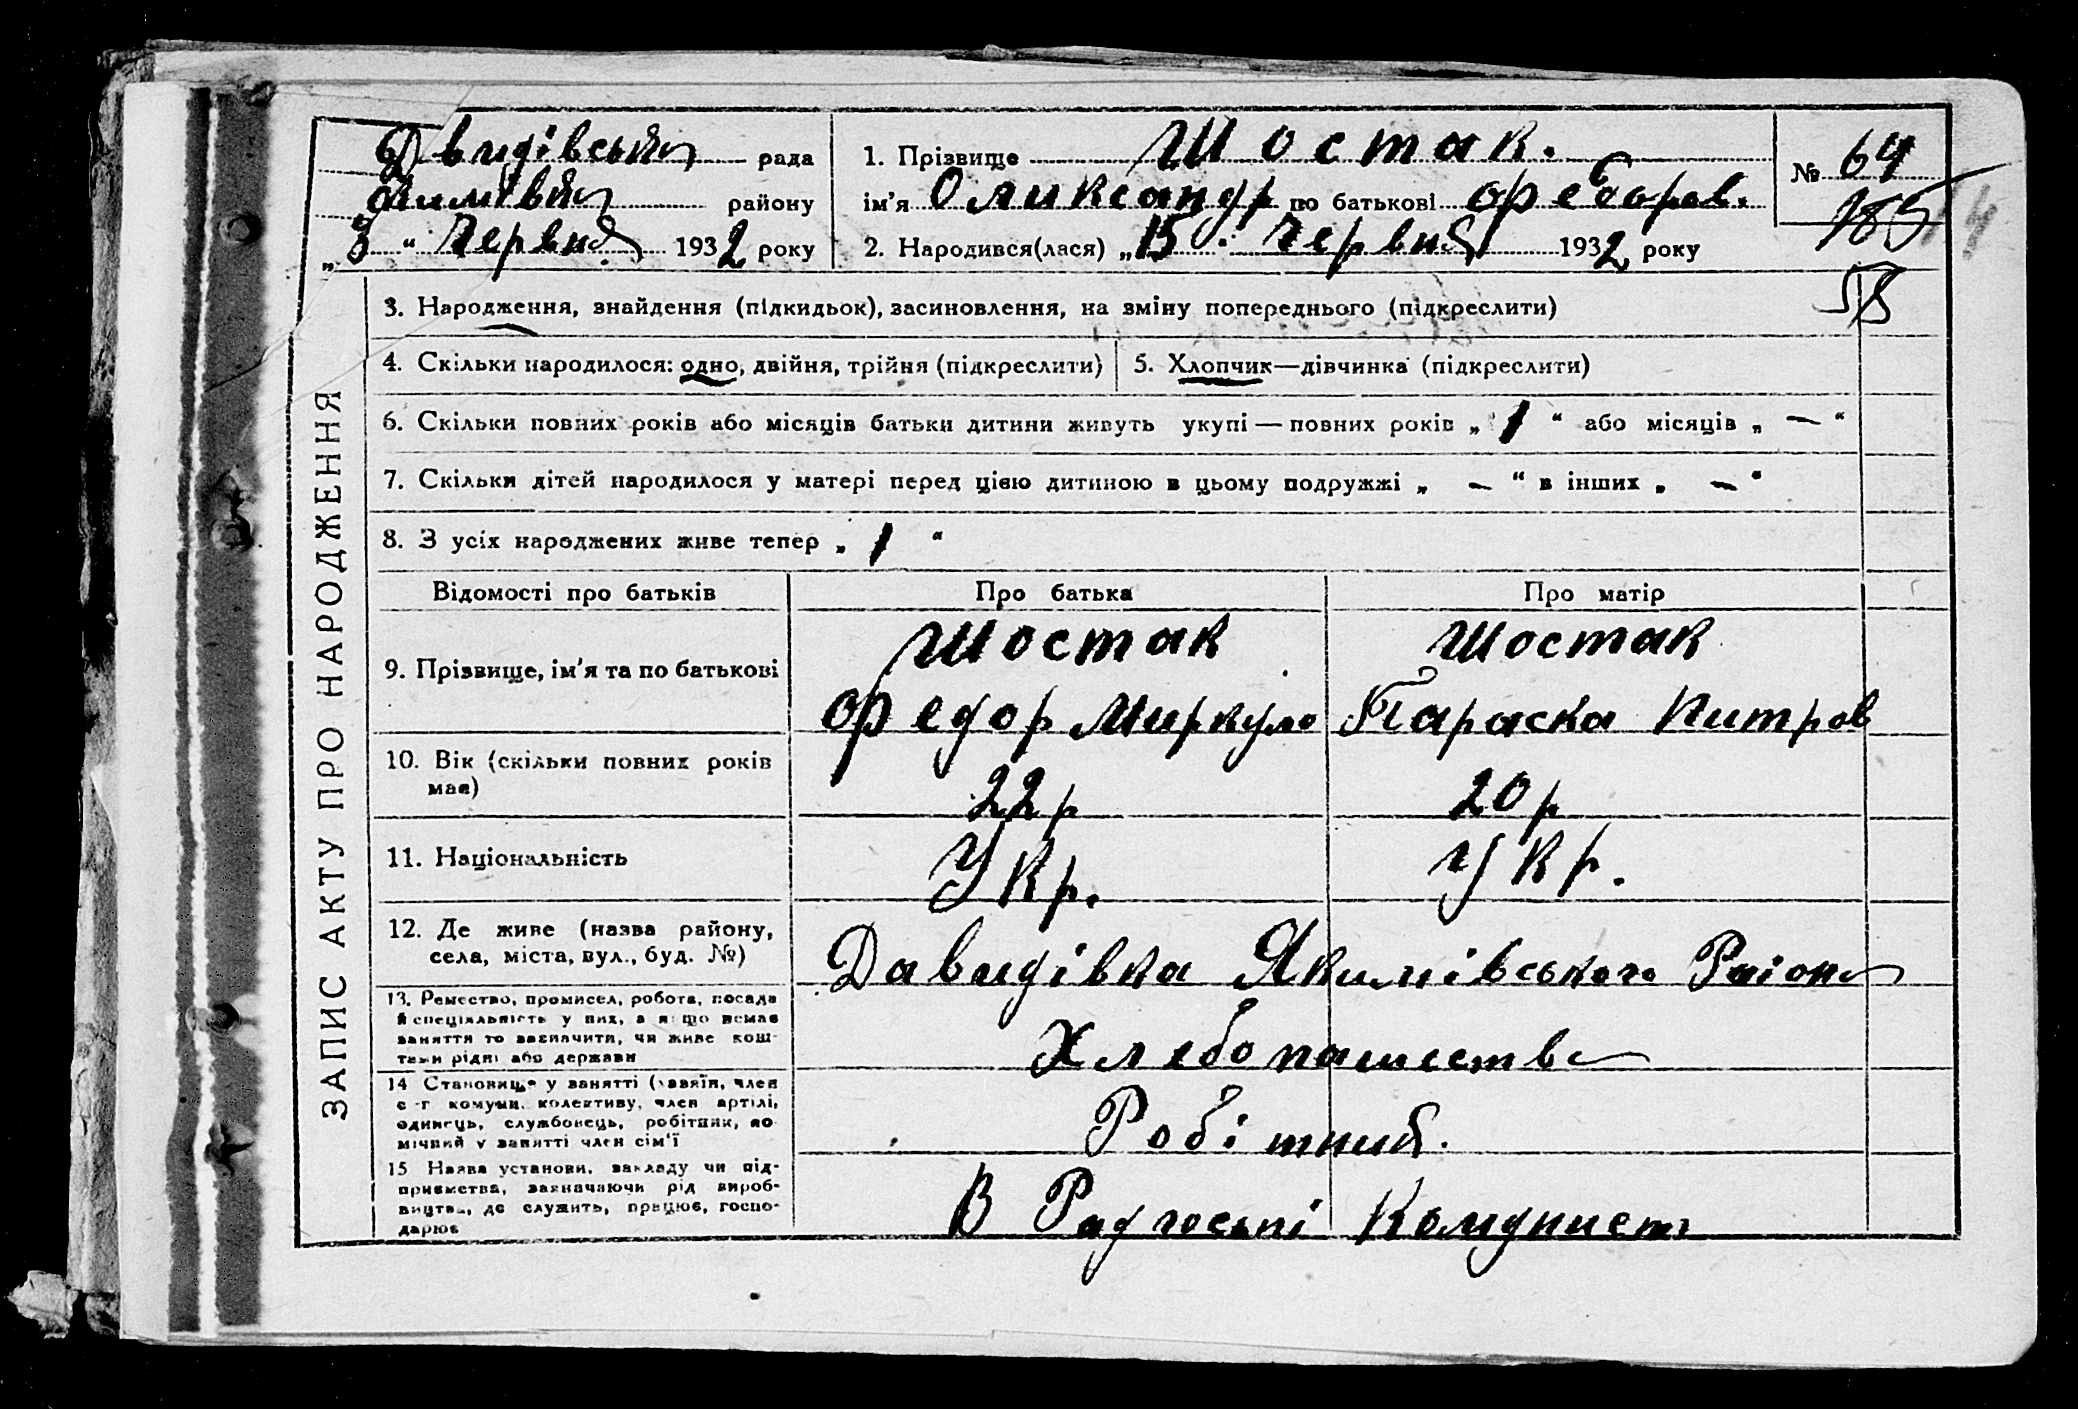 Двидівська рада
Якимівськ району
„ 3 “ Червня 1932 року
1. Прізвище Шостак.
ім'я Оликсандр по батькові Федоров.
2. Народився(лася) „ 15 “ Червня 1932 року
№ 64
185
58
ЗАПИС АКТУ ПРО НАРОДЖЕННЯ
3. Народження, знайдення (підкидьок), засиновлення, на зміну попереднього (підкреслити)
4. Скільки народилося: одно, двійня, трійня (підкреслити)
5. Хлопчик—дівчинка (підкреслити)
6. Скільки повних років або місяців батьки дитини живуть укупі — повних років „ 1 “ або місяців „ — “
7. Скільки дітей народилося у матері перед цією дитиною в цьому подружжі „ — “ в інших „ — “
8. З усіх народжених живе тепер „ 1 “
Відомості про батьків Про батька Про матір
9. Прізвище, ім'я та по батькові
Шостак
Федор Миркуло
Шостак
Параска Питров
10. Вік (скільки повних років
має)
22 р
20 р
11. Національність
Укр.
Укр.
12. Де живе (назва району,
села, міста, вул., буд. №)
Давидівка Якимівського Район
13. Ремество, промисел, робота, посада
й спеціяльність у них, а якщо немає
заняття то зазначити, чи живе кош-
тами рідні або держави
Хлебопашество
14 Становище у занятті (хазяїн, член
с.-г комуни, колективу, член артілі,
одинець, службовець, робітник, по-
мічний у занятті член сім'ї
Робітник.
15 Назва установи, закладу чи під-
приємства, зазначаючи рід вироб-
ництва, де служить, працює, госпо-
дарює
В Радгоспі Комунист